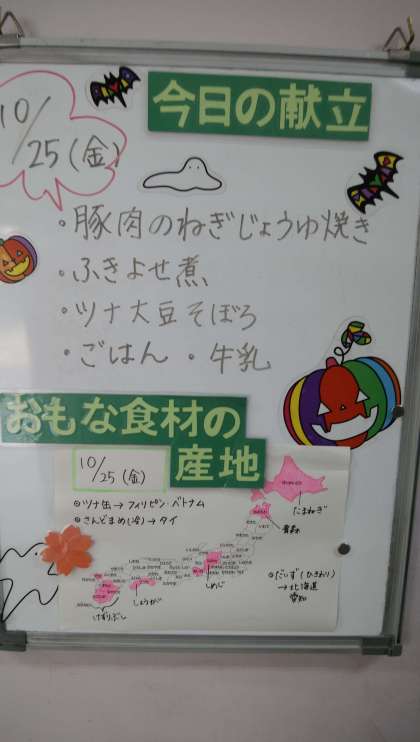 今日の献立
10/25(金)
・豚肉のねぎじょうゆ焼き
・ふきよせ煮
・ツナ大豆そぼろ
・ごはん ・牛乳
おもな食材の
産地
10/25(金)
ツナ缶→フィリピン・ベトナム
さんどまめ(冷)→タイ
たまねぎ
青森
だいず(ひきわり)
→北海道
愛知
しめじ
しょうが
けずりぶし